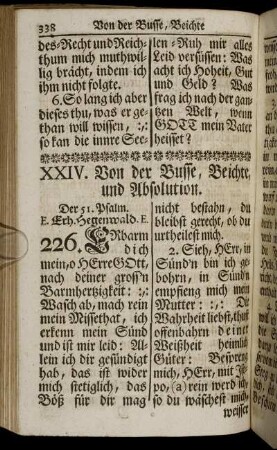 338 Von der Busse, Beichte
des-Recht und Reich-
thum mich muthwil-
lig brächt, indem ich
ihm nicht folgte.
6. So lang ich aber
dieses thu, was er ge-
than will wissen, :,:
so kan die innre See-
len-Ruh mir alles
Leid versüssen: Was
acht ich Hoheit, Gut
und Geld? Was
frag ich nach der gan-
tzen Welt, wenn
GOTT mein Vater
heisset?
XXIV. Von der Busse, Beichte,
und Absolution.
Der 51. Psalm.
E. Erh. Hegenwald. E.
226. ERbarm
dich
mein, o HErre GOtt,
nach deiner gross'n
Barmhertzigkeit: :,:
Wasch ab, mach rein
mein Missethat, ich
erkenn mein Sünd
und ist mir leid: Al-
lein ich dir gesündigt
hab, das ist wider
mich stetiglich, das
Böß für dir mag
nicht bestahn, du
bleibst gerecht, ob du
urtheilest mich.
2. Sieh, HErr, in
Sünd'n bin ich ge-
bohrn, in Sünd'n
empfieng mich mein
Mutter: :,: Die
Wahrheit liebst, thust
offenbahrn deiner
Weißheit heimlich
Güter: Bespreng
mich, HErr, mit Js-
po, (a) rein werd ich,
so du wäschest mich,
weisser